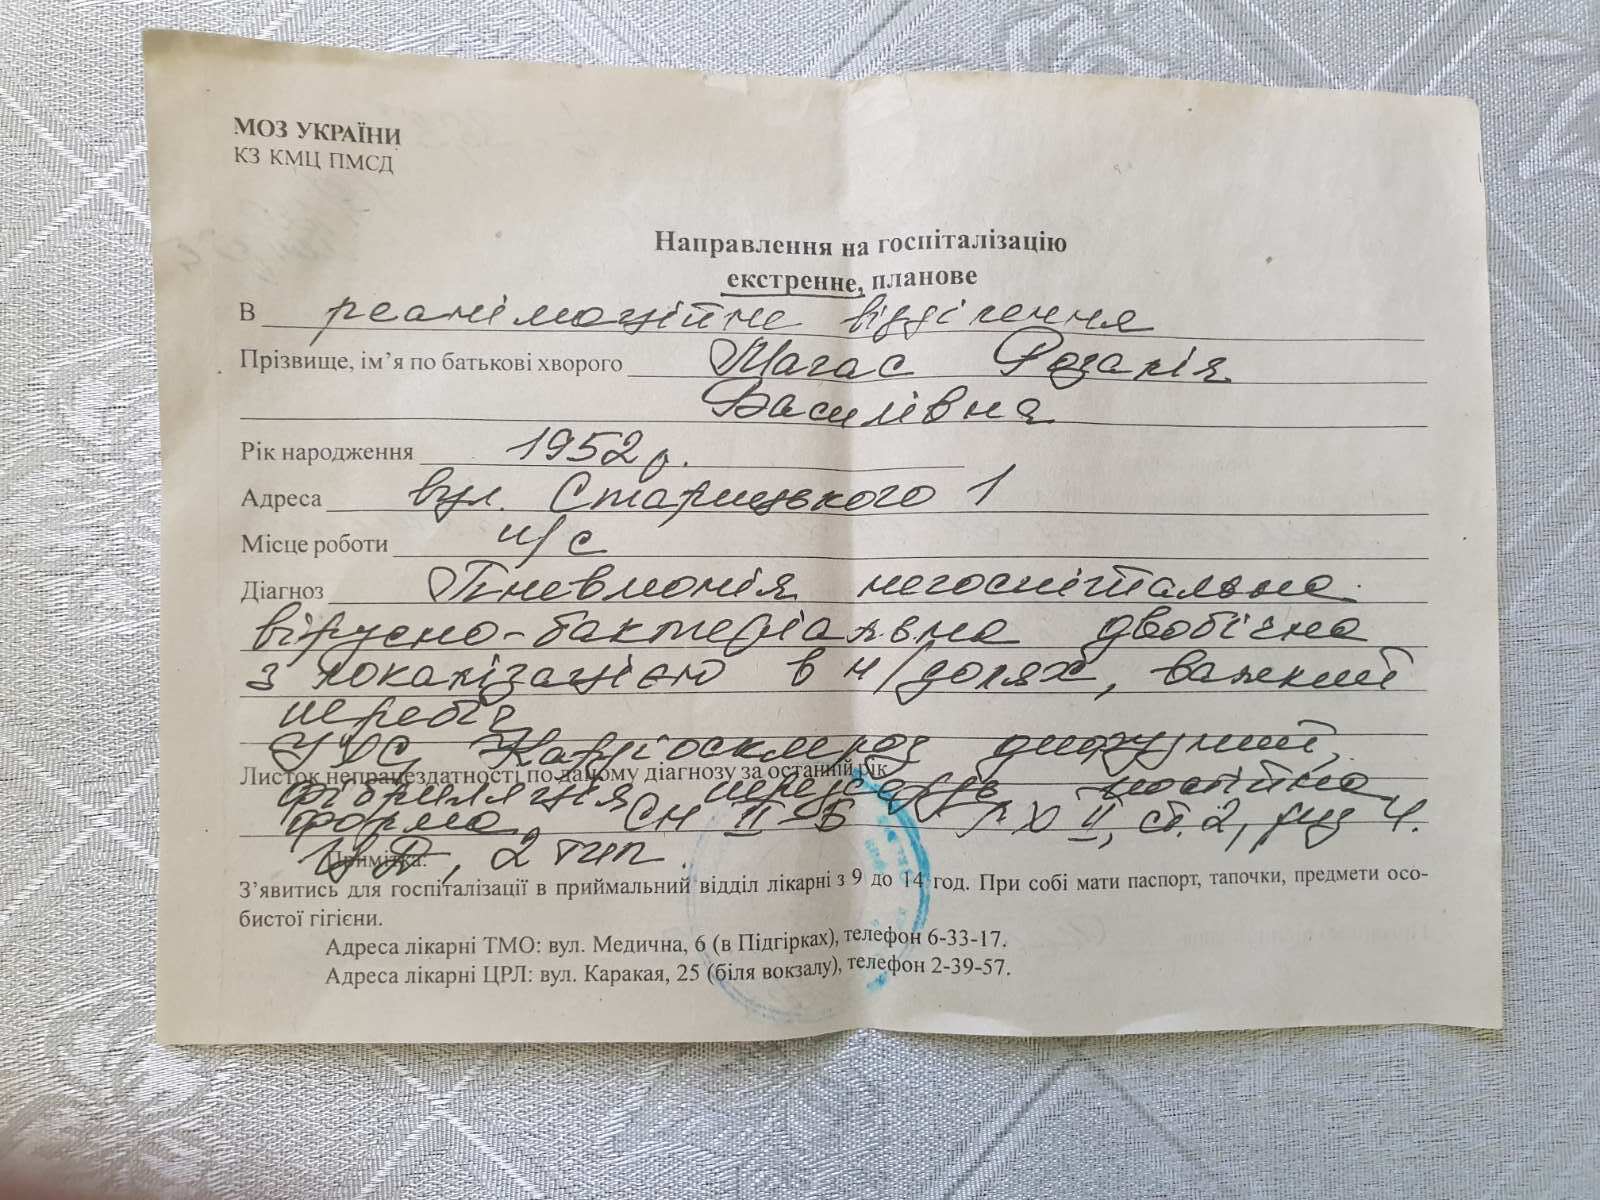 МОЗ УКРАЇНИ
КЗ КМЦ ПМСД
Направлення на госпіталізацію
екстренне, планове
В реанімаційне відділення
Прізвище, ім’я по батькові хворого Магас Розалія
Василівна
Рік народження 1952 р.
Адреса вул. Старицького 1
Місце роботи н/с
Діагноз Пневмонія негоспітальна
вірусно-бактеріальна двобічна
з локалізацією в н/долях, важкий
перебіг
ІХС, Кардіосклероз дифузний,
Листок непрацездатності по даному діагнозу за останній рік
фібриляція передсердь постійна
форма, СН II-Б ГХ II, ст. 2, риз 4.
ЦД, 2 тип.
Примітка:
З’явитись для госпіталізації в приймальний відділ лікарні з 9 до 14 год. При собі мати паспорт, тапочки, предмети осо-
бистої гігієни.
Адреса лікарні ТМО: вул. Медична, 6 (в Підгірках), телефон 6-33-17.
Адреса лікарні ЦРЛ: вул. Каракая, 25 (біля вокзалу), телефон 2-39-57.